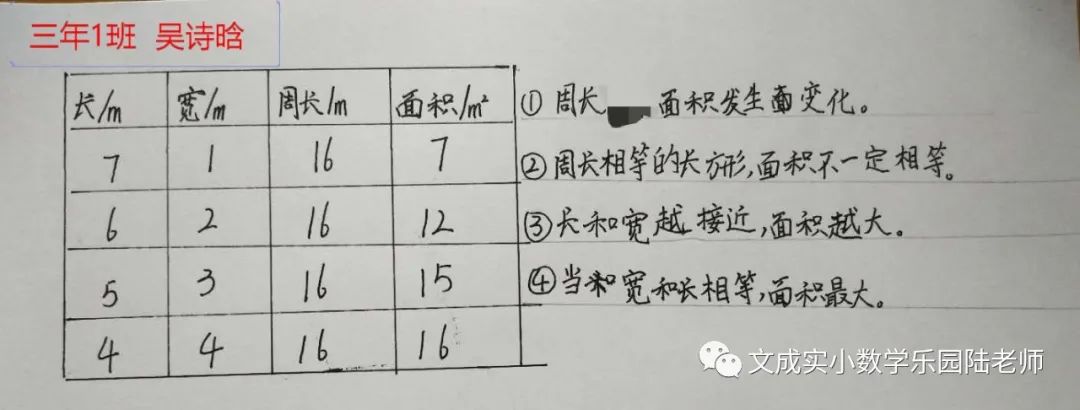 三年1班 吴诗晗
长/m 宽/m 周长/m 面积/m²
7 1 16 7
6 2 16 12
5 3 16 15
4 4 16 16
①周长 面积发生变化。
②周长相等的长方形,面积不一定相等。
③长和宽越接近,面积越大。
④当宽和长相等,面积最大。
文成实小数学乐园陆老师